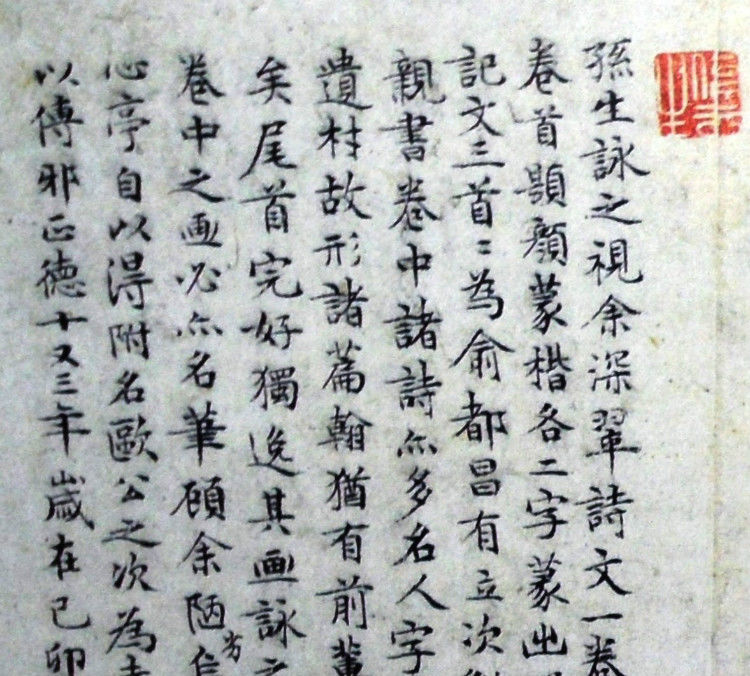 孫生詠之視余深翠詩文一卷
卷首顥顏蒙楷各二字蒙出
記文三首〻為俞都昌有立次
親書卷中諸詩尒多名人字
遺材故形諸篇翰猶有前輩
矣尾首完好獨逸其画詠之
卷中之画必尒名筆顧余陋
心亭自以得附名歐公之次為
以傳邪正德十又三年歲在己卯